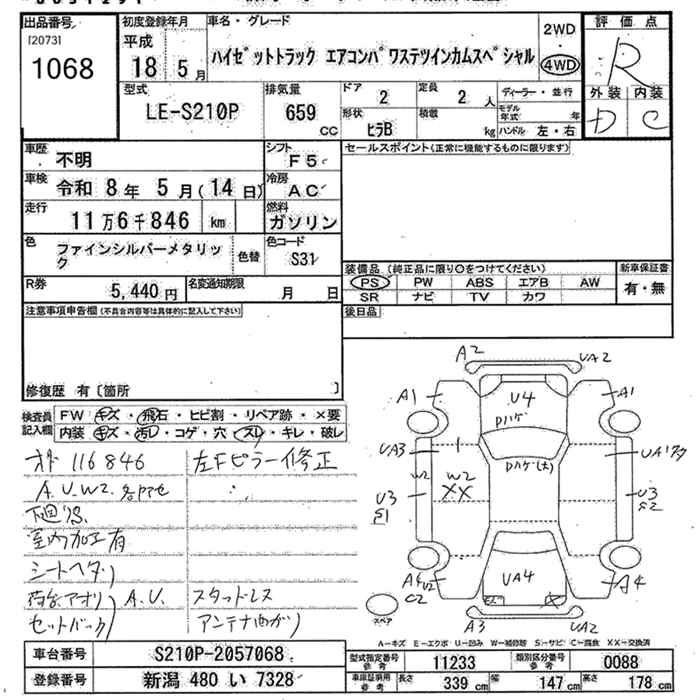 出品番号
[2073]
1068
初度登録年月
平成
18 5月
車名・グレード
ハイゼットトラック エアコンパワステツインカムスペシャル
2WD
4WD
評価点
R
外装 内装
D C
型式
LE-S210P
排気量
659
cc
ドア
2
定員
2 人
ディーラー・並行
形状
ヒラB
積載
kg
モデル年式 年
ハンドル 左・右
車歴
不明
シフト
F5
セールスポイント(正常に機能するものに限ります)
車検
令和 8年 5月(14日)
冷房
AC
走行
11万6千846 km
燃料
ガソリン
色
ファインシルバーメタリック
色替
色コード
S31
R券
5,440円
名変通知期限
月 日
装備品(純正品に限り〇をつけてください)
新車保証書
PS PW ABS エアB AW
SR ナビ TV カワ
有・無
後日品
注意事項申告欄(不具合内容等は具体的に記入して下さい)
修復歴 有〔箇所 〕
検査員記入欄
FW キズ・飛石・ヒビ割・リペア跡・×要
内装 キズ・汚レ・コゲ・穴・スレ・キレ・破レ
116846
左Fピラー修正
A.U.W2.
室内加工有
シートヘタリ
荷台アオリ A.U.
スタットレス
セットバック
アンテナ曲がり
A2
UA2
A1
U4
A1
Dハゲ
UA3
W2
W2
XX
U3
S1
U3
S2
A4
U2
C2
UA4
A4
スペア
A3
UA2
A-キズ E-エクボ U-凹み W-補修跡 S-サビ C-腐食 XX-交換済
車台番号
S210P-2057068
登録番号
新潟 480 い 7328
型式指定番号
参考
11233
類別区分番号
参考
0088
車庫証明用
参考
長さ
339 cm
幅
147 cm
高さ
178 cm